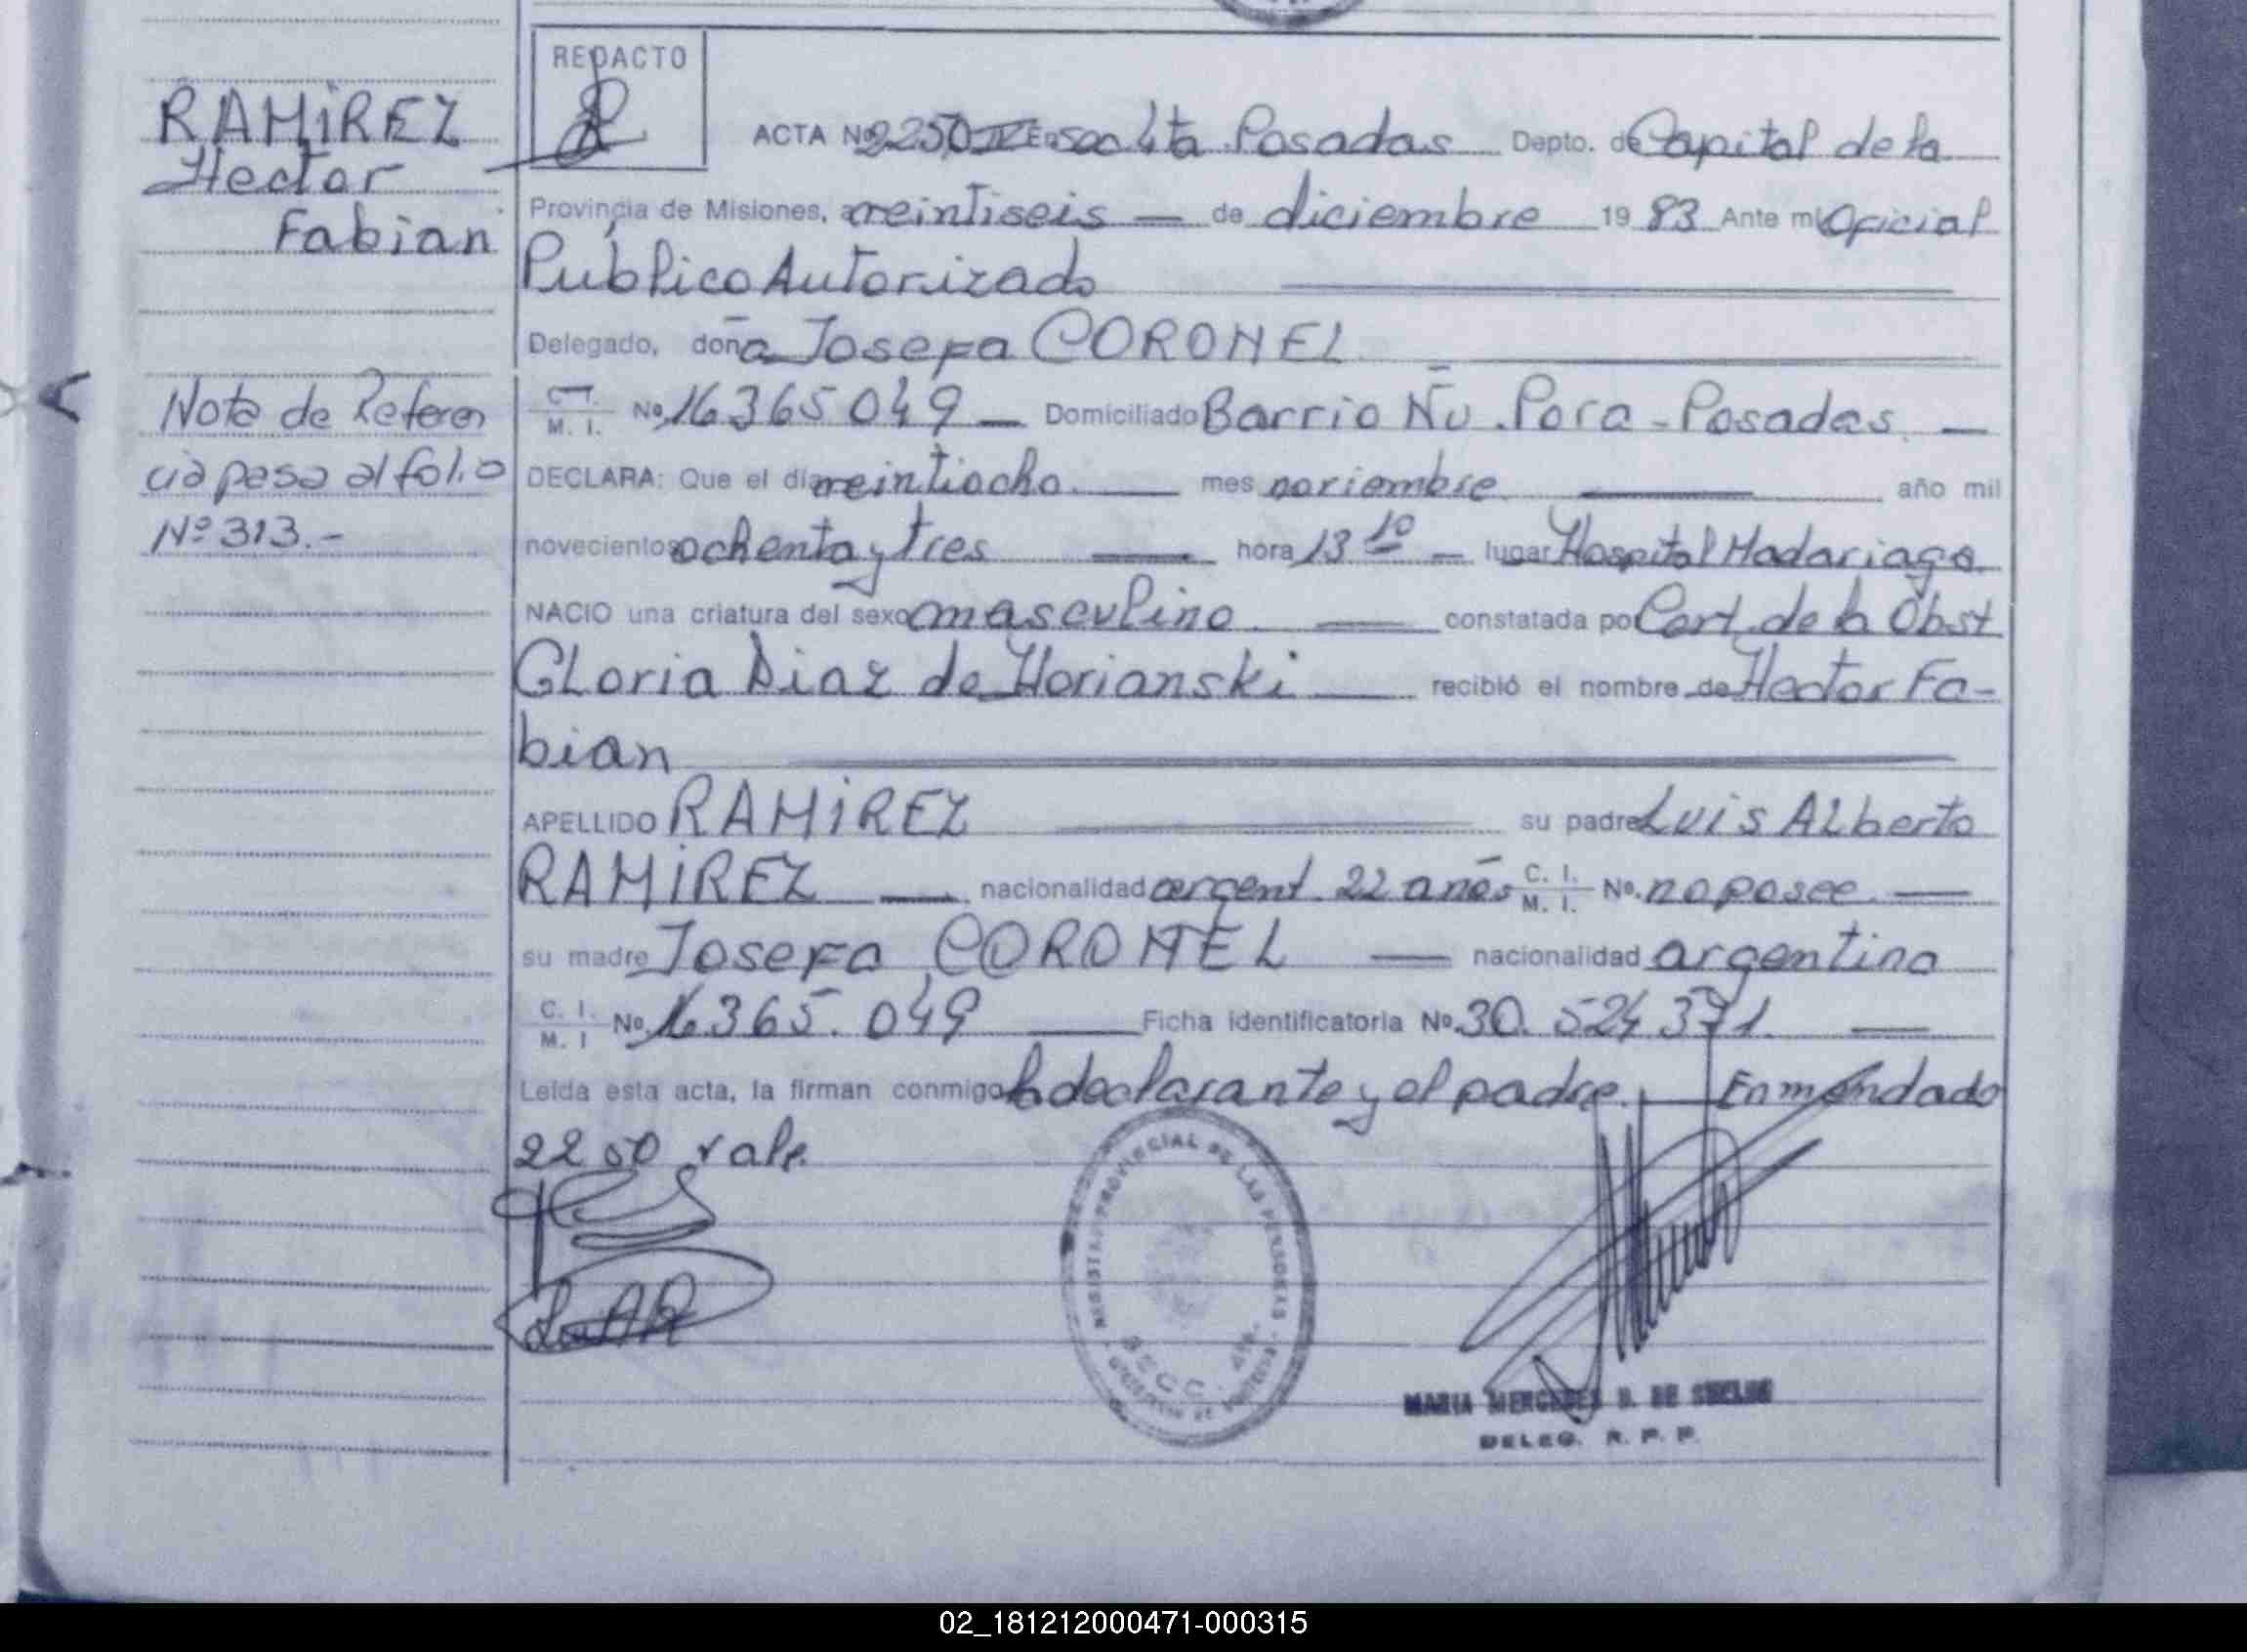 REDACTO
RAMIREZ
Hector
Fabian
Nota de Referen
cia pasa al folio
Nº 313.-
ACTA Nº 2250 IV En secc 4ta Posadas Depto. de Capital de la
Provincia de Misiones, a veintiseis — de diciembre 19 83 Ante mi Oficial
Publico Autorizado
Delegado, doña Josefa CORONEL
C. I. M. I. Nº 16365049 — Domiciliado Barrio Ñu Pora - Posadas. —
DECLARA: Que el día veintiocho. — mes noviembre — año mil
novecientos ochenta y tres — hora 13 10 — lugar Hospital Madariaga
NACIO una criatura del sexo masculino — constatada por Cert. de la Obst
Gloria Diaz de Horianski — recibió el nombre de Hector Fa-
bian
APELLIDO RAMIREZ — su padre Luis Alberto
RAMIREZ — nacionalidad argent. 22 años C. I. M. I. Nº. no posee —
su madre Josefa CORONEL — nacionalidad argentina
C. I. M. I Nº. 16365.049 — Ficha identificatoria Nº. 30.524371. —
Leída esta acta, la firman conmigo la declarante y el padre. — Enmendado
2250 vale.
REGISTRO PROVINCIAL DE LAS PERSONAS
SECC. 4ta.
MARIA MERCEDES B. DE
DELEG. R. P. P.
02_181212000471-000315